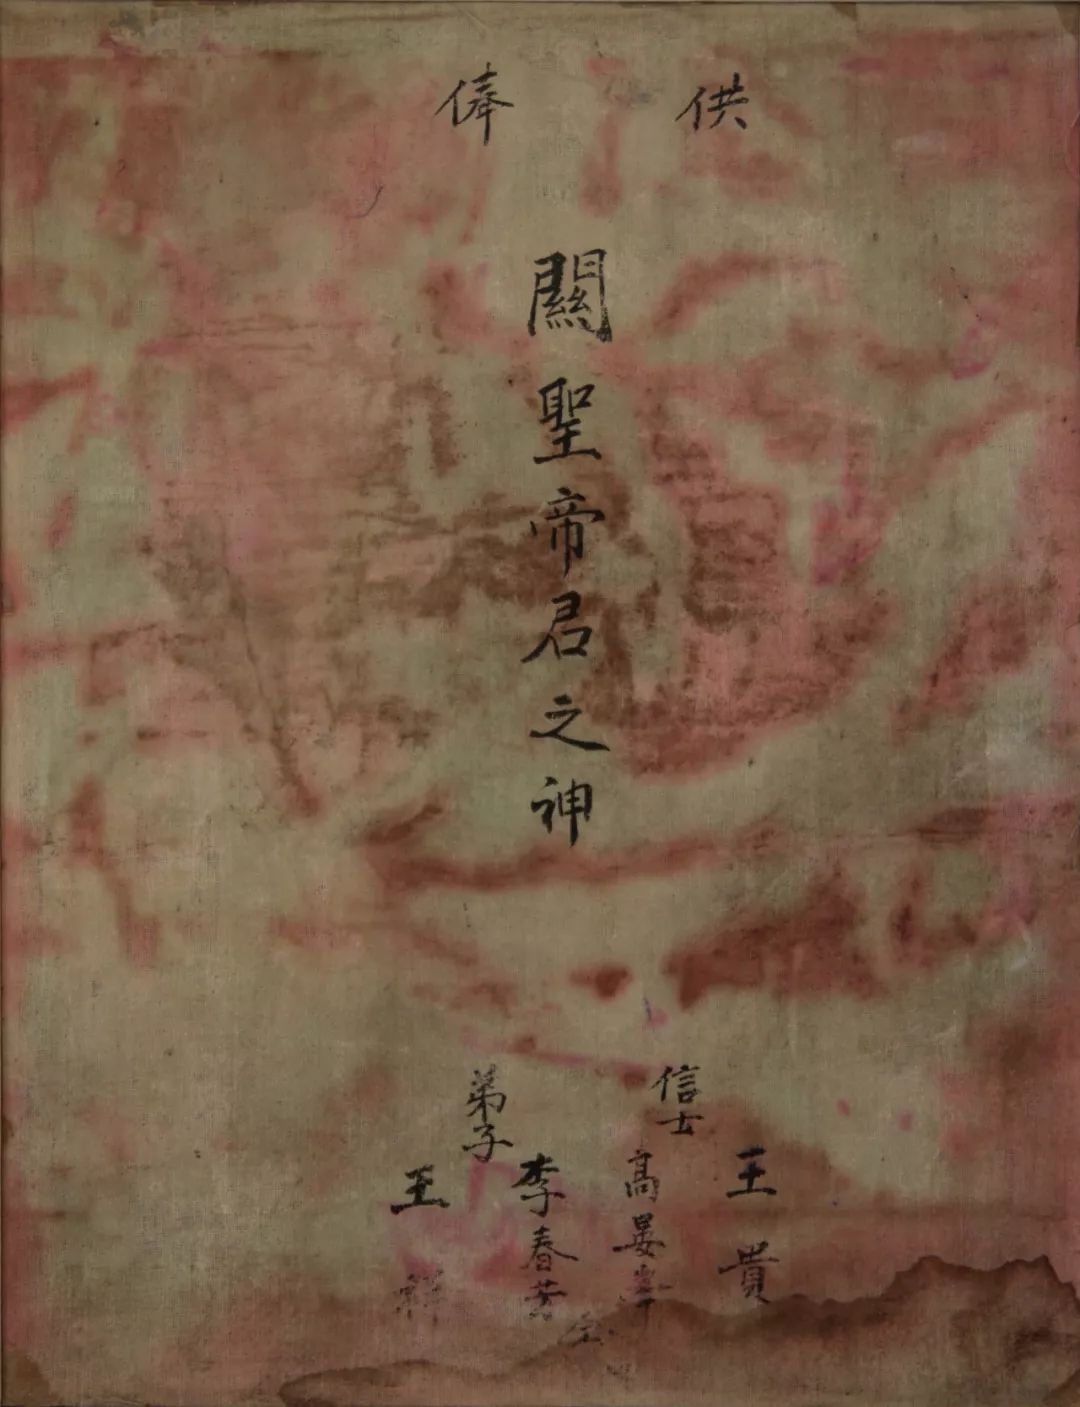 供俸
關聖帝君之神
信士
王貴
高晏峯
弟子
李春芳
王祥
仝